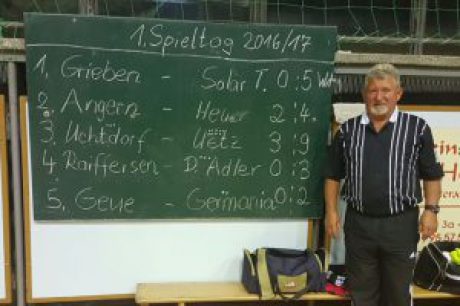 1. Spieltag 2016/17
1. Grieben - Solar T. 0:5
2. Angern - Heuer 2:4
3. Uchtdorf - Uetz 3:9
4 Raiffeisen - D. Adler 0:3
5. Geue - Germania 0:2